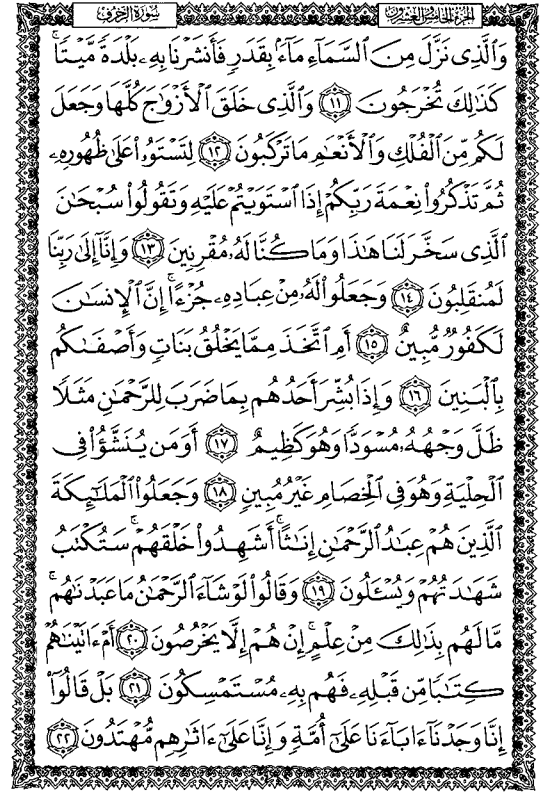 الجزء الخامس والعشرون
سورة الزخرف
وَالَّذِى نَزَّلَ مِنَ السَّمَاءِ مَاءً بِقَدَرٍ فَأَنشَرْنَا بِهِ بَلْدَةً مَّيْتًا
كَذَٰلِكَ تُخْرَجُونَ ١١ وَالَّذِى خَلَقَ الْأَزْوَٰجَ كُلَّهَا وَجَعَلَ
لَكُم مِّنَ الْفُلْكِ وَالْأَنْعَٰمِ مَا تَرْكَبُونَ ١٢ لِتَسْتَوُۥا عَلَىٰ ظُهُورِهِ
ثُمَّ تَذْكُرُوا نِعْمَةَ رَبِّكُمْ إِذَا اسْتَوَيْتُمْ عَلَيْهِ وَتَقُولُوا سُبْحَٰنَ
الَّذِى سَخَّرَ لَنَا هَٰذَا وَمَا كُنَّا لَهُ مُقْرِنِينَ ١٣ وَإِنَّا إِلَىٰ رَبِّنَا
لَمُنقَلِبُونَ ١٤ وَجَعَلُوا لَهُ مِنْ عِبَادِهِ جُزْءًا إِنَّ الْإِنسَٰنَ
لَكَفُورٌ مُّبِينٌ ١٥ أَمِ اتَّخَذَ مِمَّا يَخْلُقُ بَنَاتٍ وَأَصْفَىٰكُم
بِالْبَنِينَ ١٦ وَإِذَا بُشِّرَ أَحَدُهُم بِمَا ضَرَبَ لِلرَّحْمَٰنِ مَثَلًا
ظَلَّ وَجْهُهُ مُسْوَدًّا وَهُوَ كَظِيمٌ ١٧ أَوَمَن يُنَشَّؤُا فِى
الْحِلْيَةِ وَهُوَ فِى الْخِصَامِ غَيْرُ مُبِينٍ ١٨ وَجَعَلُوا الْمَلَٰئِكَةَ
الَّذِينَ هُمْ عِبَٰدُ الرَّحْمَٰنِ إِنَٰثًا أَشَهِدُوا خَلْقَهُمْ سَتُكْتَبُ
شَهَٰدَتُهُمْ وَيُسْـَٔلُونَ ١٩ وَقَالُوا لَوْ شَاءَ الرَّحْمَٰنُ مَا عَبَدْنَٰهُم
مَّا لَهُم بِذَٰلِكَ مِنْ عِلْمٍ إِنْ هُمْ إِلَّا يَخْرُصُونَ ٢٠ أَمْ ءَاتَيْنَٰهُمْ
كِتَٰبًا مِّن قَبْلِهِ فَهُم بِهِ مُسْتَمْسِكُونَ ٢١ بَلْ قَالُوا
إِنَّا وَجَدْنَا ءَابَاءَنَا عَلَىٰ أُمَّةٍ وَإِنَّا عَلَىٰ ءَاثَٰرِهِم مُّهْتَدُونَ ٢٢